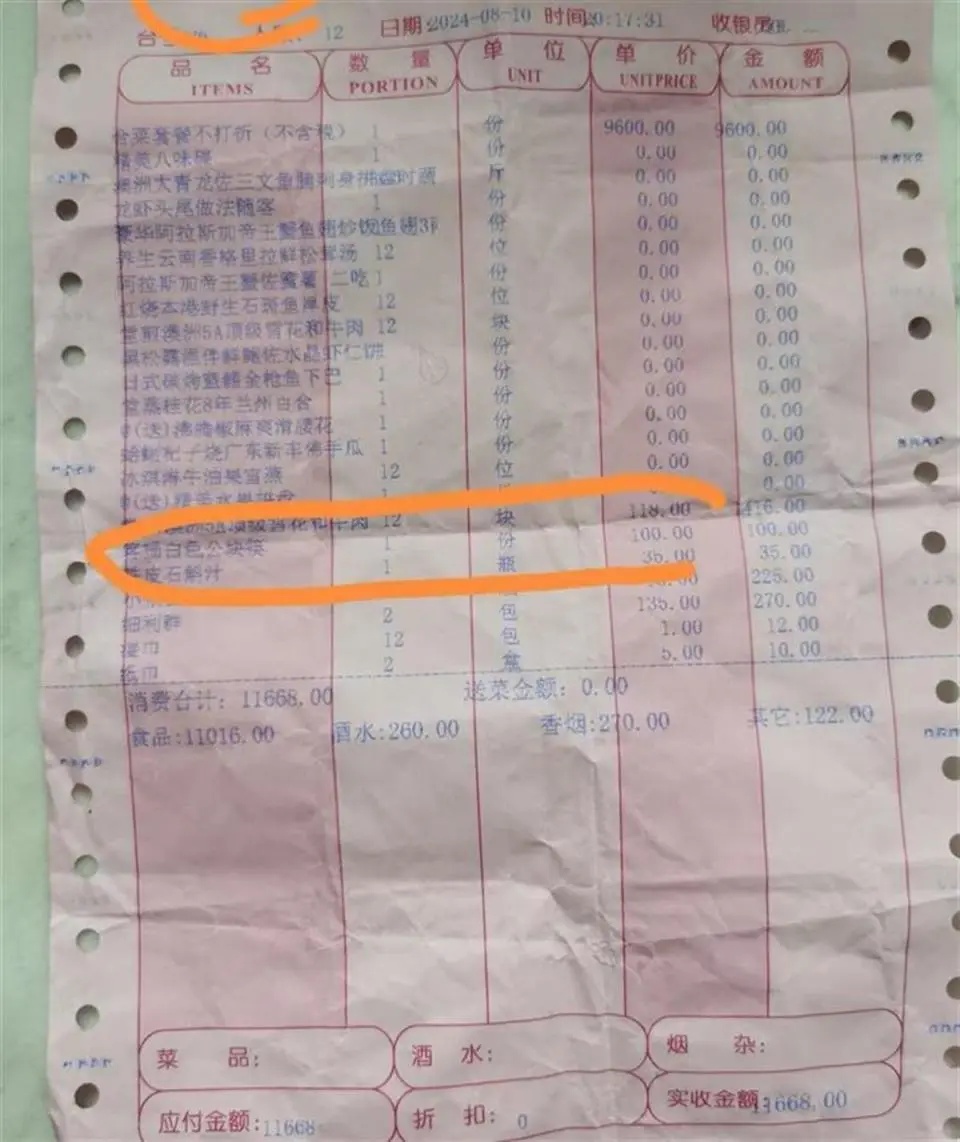 台 12 日期 2024-08-10 时间 20:17:31 收银员
品 名 数 量 单 位 单 价 金 额
ITEMS PORTION UNIT UNITPRICE AMOUNT
合菜套餐不打折（不含税） 1 份 9600.00 9600.00
精美八味碟 1 份 0.00 0.00
澳洲大青龙佐三文鱼腩刺身拼 时蔬 斤 0.00 0.00
龙虾头尾做法随客 1 份 0.00 0.00
豪华阿拉斯加帝王蟹鱼翅炒饭鱼翅 份 0.00 0.00
养生云南香格里拉鲜松茸汤 12 位 0.00 0.00
阿拉斯加帝王蟹佐蜜薯 二吃 1 份 0.00 0.00
红烧本港野生石斑鱼厚皮 12 位 0.00 0.00
堂煎澳洲5A顶级雪花和牛肉 12 块 0.00 0.00
黑松露 伴鲜 佐水晶虾仁饼 份 0.00 0.00
日式碳烤蓝鳍金枪鱼下巴 1 份 0.00 0.00
堂蒸桂花8年兰州百合 1 份 0.00 0.00
@(送)沸腾椒麻爽滑腰花 1 份 0.00 0.00
蛤蜊杞子烧广东新丰佛手瓜 1 份 0.00 0.00
冰淇淋牛油果官燕 12 位 0.00 0.00
@(送)精美水果拼盘 1 0.00 0.00
澳洲5A顶级雪花和牛肉 12 块 118.00 1416.00
白色公块筷 1 份 100.00 100.00
铁皮石斛汁 1 瓶 35.00 35.00
225.00
细利群 2 包 135.00 270.00
湿巾 12 包 1.00 12.00
纸巾 2 盒 5.00 10.00
消费合计：11668.00 送菜金额：0.00
食品:11016.00 酒水:260.00 香烟:270.00 其它:122.00
菜 品: 酒 水: 烟 杂:
应付金额:11668 折 扣: 0 实收金额:11668.00